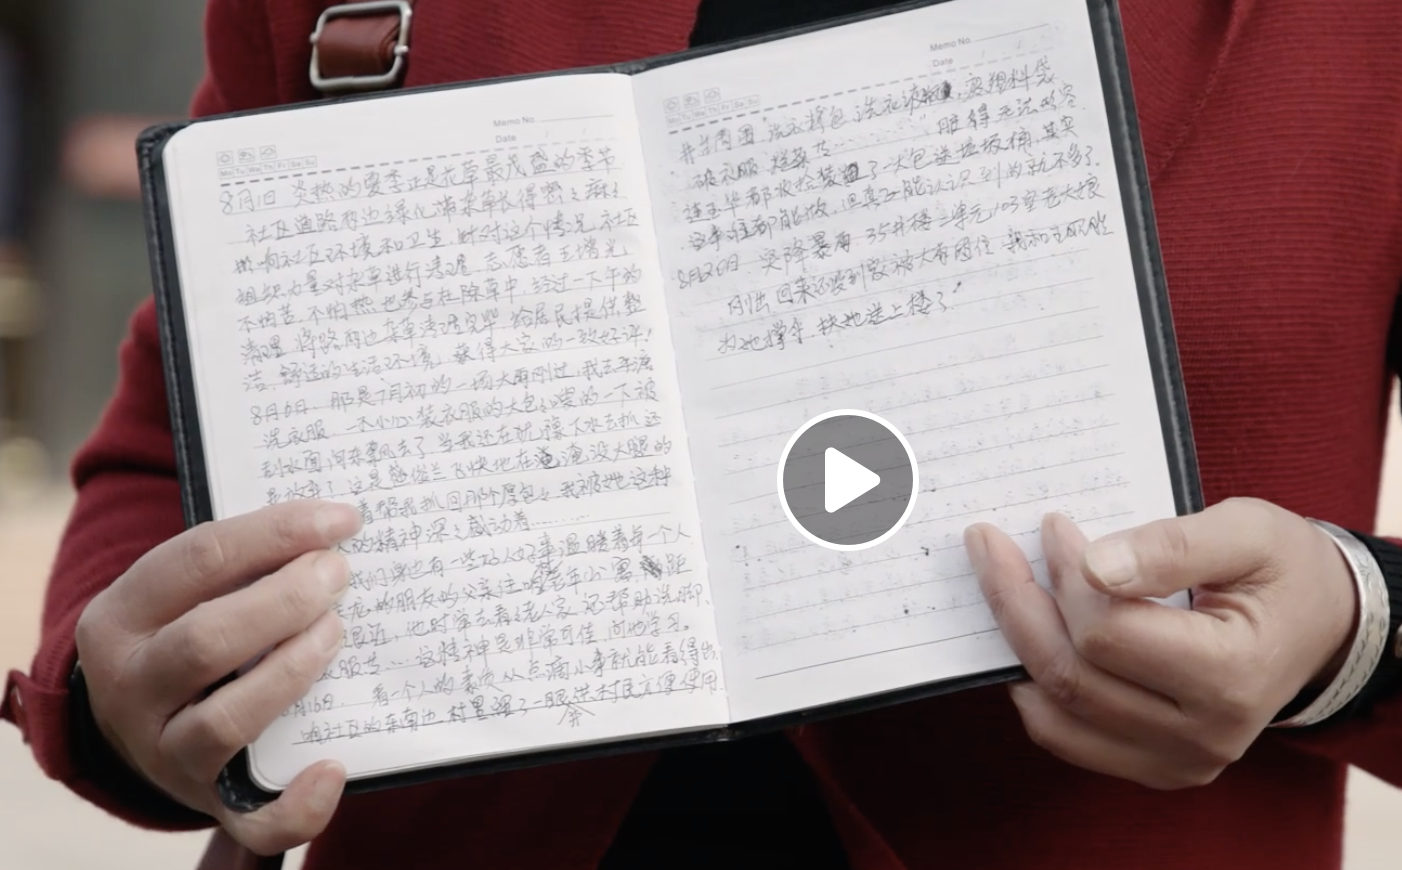 Memo No.
Date
Mo Tu We Th Fr Sa Su
8月1日 炎热的夏季正是花草最茂盛的季节
社区道路两边绿化带杂草长得密密麻麻
影响社区环境和卫生,针对这个情况,社区
组织力量对杂草进行清理,志愿者王增光
不怕苦、不怕热也参与在除草中,经过一下午的
清理,将路两边杂草清理完毕,给居民提供整
洁、舒适的生活环境,获得大家的一致好评!
8月6日,那是7月初的一场大雨刚过,我去
洗衣服,一不小心装衣服的大包被
刮水面向东漂去了,当我还在犹豫下水去抓还
是放弃了,这是 兰飞快地在 没大腿的
着帮我抓回那个 包,我被她这种
人的精神深深感动着………
我们身边有一些好人好事温暖着每一个人
的朋友的父亲住 老年公寓 距
很近,他时常去看老人家,还帮助洗脚、
衣服等……这精神是非常可佳,向他学习。
月16日,看一个人的素质从点滴小事就能看得出,
响社区的东南边,村里 了一眼井供村民方便使用
Memo No.
Date
Mo Tu We Th Fr Sa Su
井台周围,洗衣粉包、洗衣液瓶,塑料袋
破衣服、烂菜等…… 脏得无法形容
连玉华都收拾装了一大包送垃圾桶,其实
这事谁都能做,但真正能认识到的就不多了。
8月20日,突降暴雨,35井楼二单元103室老大娘
刚出回来还没到家被大雨困住,我和王
为她撑伞,扶她送上楼了。